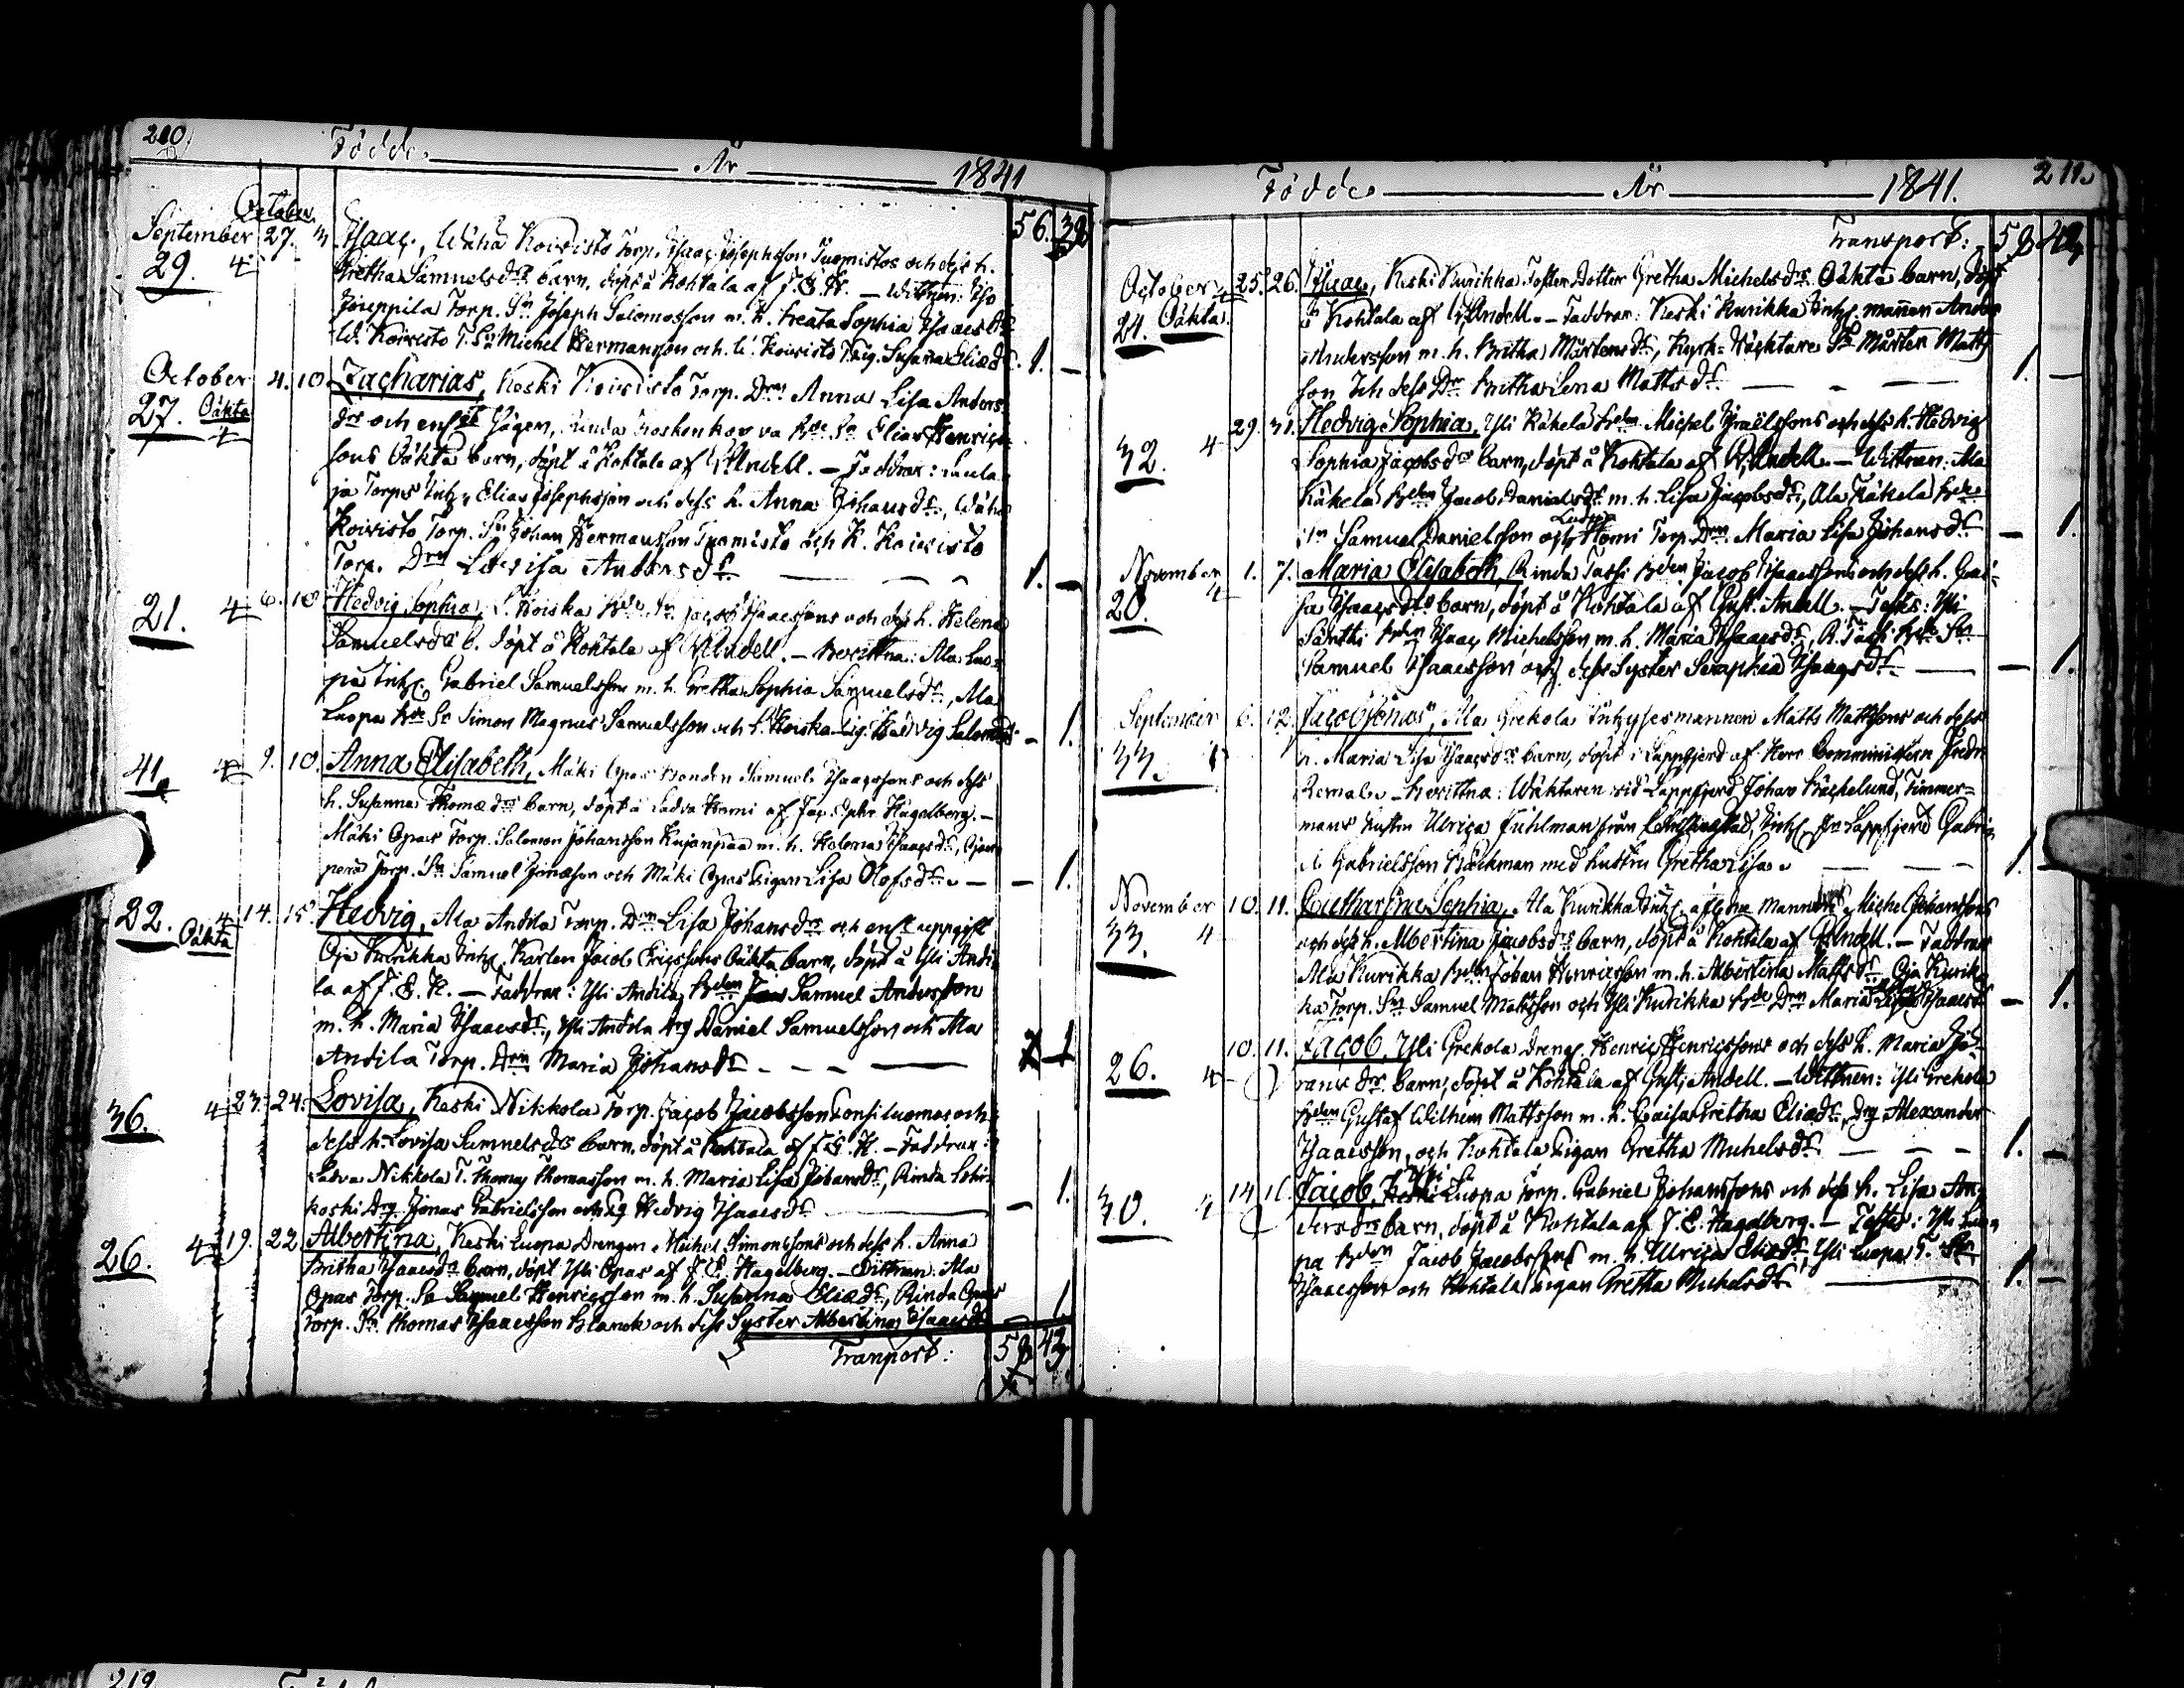 210
Födde År 1841
October 56. 38
September 27. 3 Isaac, Wähä Koivisto Torp. Isaac Josephsson Tuomistos och dess h.
29. 4 Gretha Samuelsdrs barn, döpt å Kohtala af J. E. H. — Wittnen:
Jyreppila Torp. Sn Joseph Salomosson m. h. Greata Sophia Isaacsdr
W. Koivisto T. Sn Michel Hermansson och W. Koivisto Pig. Susanna Eliædr 1. —
October 4. 10 Zacharias, Keski Koivisto Torp. Drns Anna Lisa Anders
27. Oäkta drs och enligt Sägen, Rinda Koskenkorva Bde Sn Elias Henrics
4 sons Oäkta barn, döpt å Kohtala af G. Andell. — Faddrar: Laula
ja Torps Inh. Elias Josephsson och dess h. Anna Johansdr, Wähä
Koivisto Torp. Sn Johan Hermansson Tuomisto och K. Koivisto
Torp. Drn Lovisa Andersdr — — — 1. —
21. 4 6. 10 Hedvig Sophia, L. Koiska Bde Sn Jacob Isaacssons och dess h. Helena
Samuelsdrs b. döpt å Kohtala af G. Andell. — Ala Luo-
pa Inh. Gabriel Samuelsson m. h. Gretha Sophia Samuelsdr, Ala
Luopa Bde Sn Simon Magnus Samuelsson och L. Koiska Pig. Hedvig Salomosdr — 1.
41. 4 9. 10. Anna Elisabeth, Mäki Opas Bonden Samuel Isaacssons och dess
h. Susanna Thomædrs barn, döpt å Ladva Homi af Jac. Ephr. Hagelberg. —
Mäki Opas Torp. Salomon Johansson Kujanpää m. h. Helena Isaacsdr, Ojan
perä Torp. Sn Samuel Jonæson och Mäki Opas Pigan Lisa Olofsdr. — — 1.
22. 4 14. 15 Hedvig, Ala Andila Torp. Drn Lisa Johansdrs och enl. uppgift
Oäkta Oja Kurikka Inh. Karlen Jacob Ericssons Oäkta barn, döpt å Yli Andi
la af J. E. H. — Faddrar: Yli Andila Bden Samuel Andersson
m. h. Maria Isaacsdr, Yli Andila Drg Daniel Samuelsson och Ala
Andila Torp. Drn Maria Johansdr — — — 1
36. 4 23. 24. Lovisa, Keski Nikkola Torp. Jacob Jacobsson Konsiluomas och
dess h. Lovisa Samuelsdrs barn, döpt å Kohtala af J. E. H. — Faddrar:
Ladva Nikkola T. Thomas Thomasson m. h. Maria Lisa Johansdr, Rinda
koski Drg. Jonas Gabrielsson och Pg Hedvig Isaacsdr — — 1.
26. 4 19. 22 Albertina, Keski Luopa Drengen Michel Simonssons och dess h. Anna
Britha Isaacsdrs barn, döpt Yli Opas af J. E. Hagelberg. — Wittnen: Ala
Opas Torp. Sn Samuel Henricsson m. h. Susanna Eliædr, Rinda Opas
Torp. Sn Thomas Isaacsson Blanck och dess Syster Albertina Isaacsdr 1
Transport: 58 43
Födde År 1841. 211.
Transport: 58 43
October 25. 26. Isaac, Keski Kurikka Foster Dotter Gretha Michelsdrs Oäkta barn, döpt
24. Oäkta. å Kohtala af G. Andell. — Faddrar: Keski Kurikka Inh. mannen Anders
Andersson m. h. Britha Mårtensdr, Kyrk-Väcktare Sn Mårten Matts
son och dess Dr Britha Lena Mattsdr — — — 1. —
32. 4 29. 31. Hedvig Sophia, Yli Käkelä Bden Michel Israëlssons och dess h. Hedvig
Sophia Jacobsdrs barn, döpt å Kohtala af G. Andell. — Wittnen: Ala
Käkelä Bden Jacob Danielsson m. h. Lisa Jacobsdr, Ala Käkelä Bde
Sn Samuel Danielsson och Ladva Homi Torp. Drn. Maria Lisa Johansdr — 1.
November 1. 7. Maria Elisabeth, Rinda Tassi Bden Jacob Isaacssons och dess h. Cai-
20. 4 sa Isaacsdrs barn, döpt å Kohtala af Gust. Andell. — Testes: Yli
Säntti Bden Isaac Michelsson m. h. Maria Isaacsdr, R. Tassi Bde Sn
Samuel Isaacsson och dess Syster Seraphia Isaacsdr — — 1.
September 6. 12. Jacob Jonas, Ala Grekola Inhysesmannen Matts Mattssons och dess
33. h. Maria Lisa Isaacsdrs barn, döpt i Lappfjerd af Herr Comministern Fredr.
Remale. — Wäktaren vid Lappfjerd Johan Bäckelund, Timmer-
mans hustru Ulrica Juhlman från Christinestad, Inh. fr Lappfjerd Gabri
el Gabrielsson Bäckman med hustru Gretha Lisa. — — 1. —
November 10. 11. Catharina Sophia, Ala Kurikka Inh. mannens Michel Johanssons
33. 4 och dess h. Albertina Jacobsdrs barn, döpt å Kohtala af G. Andell. — Faddrar
Ala Kurikka Bden Johan Henricsson m. h. Albertina Mattsdr, Oja Kurik
ka Torp. Sn Samuel Mattsson och Yli Kurikka Bde Drn Maria Isaacsdr — 1.
26. 4 10. 11. Jacob, Yli Grekola Dreng. Henric Henricssons och dess h. Maria Jo-
hansdrs barn, döpt å Kohtala af Gust. Andell. — Wittnen: Yli Grekola
Bden Gustaf Wilhelm Mattsson m. h. Caisa Gretha Eliædr, Drg Alexander
Isaacsson, och Kohtala Pigan Gretha Michelsdr — — — 1. —
30. 4 14. 16. Jacob, Yli Luopa Torp. Gabriel Johanssons och dess h. Lisa An-
dersdrs barn, döpt å Kohtala af J. E. Hagelberg. — Testes: Yli Luo
pa Bden Jacob Jacobsson m. h. Ulrica Eliædr, Yli Luopa T. Sn
Isaacsson och Kohtala Pigan Gretha Michelsdr — 1. —
212